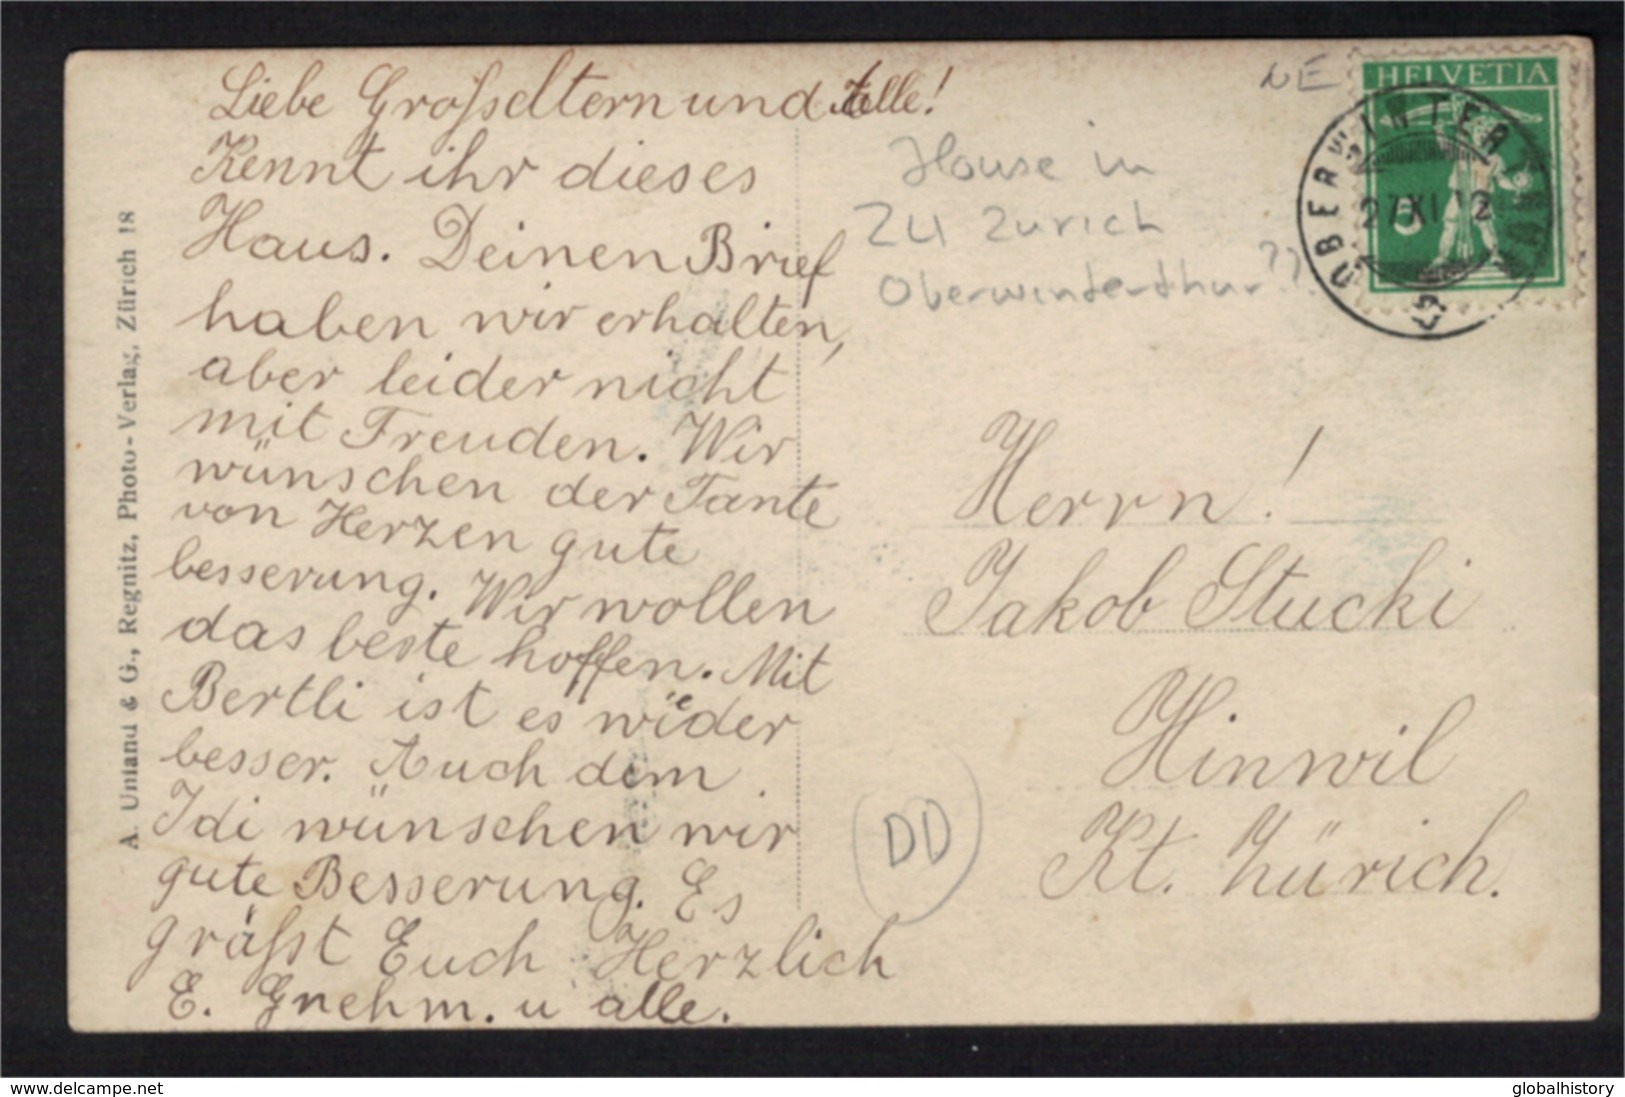 Liebe Großeltern und Alle!
Kennt ihr dieses
Haus. Deinen Brief
haben wir erhalten,
aber leider nicht
mit Freuden. Wir
wünschen der Tante
von Herzen gute
besserung. Wir wollen
das beste hoffen. Mit
Bertli ist es wieder
besser. Auch dem
Idi wünschen wir
gute Besserung. Es
grüßt Euch Herzlich
E. Gnehm. u alle.
A. Untand & G., Regnitz, Photo-Verlag, Zürich 18
NE
House in
ZU Zurich
Oberwinterthur ??
HELVETIA
5
OBERWINTERTHUR
27 XI 12
Herrn!
Jakob Stucki
Hinwil
Kt. Zürich.
DD
www.delcampe.net
globalhistory